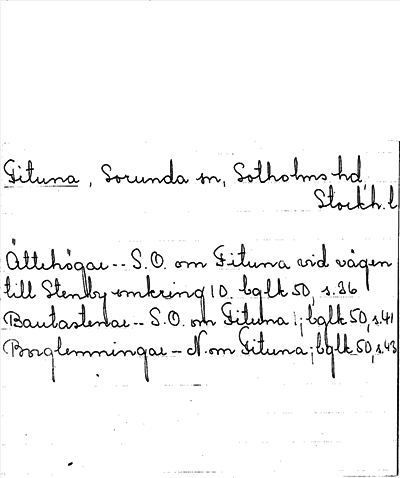 Fituna, Sorunda sn, Sotholms hd,
Stockh. l
Ättehögar -- S.O. om Fituna vid vägen
till Stenby omkring 10. bglk 50, s.36
Bautastenar -- S.O. om Fituna; bglk 50, s.41
Borglemningar - N. om Fituna; bglk 50, s.43